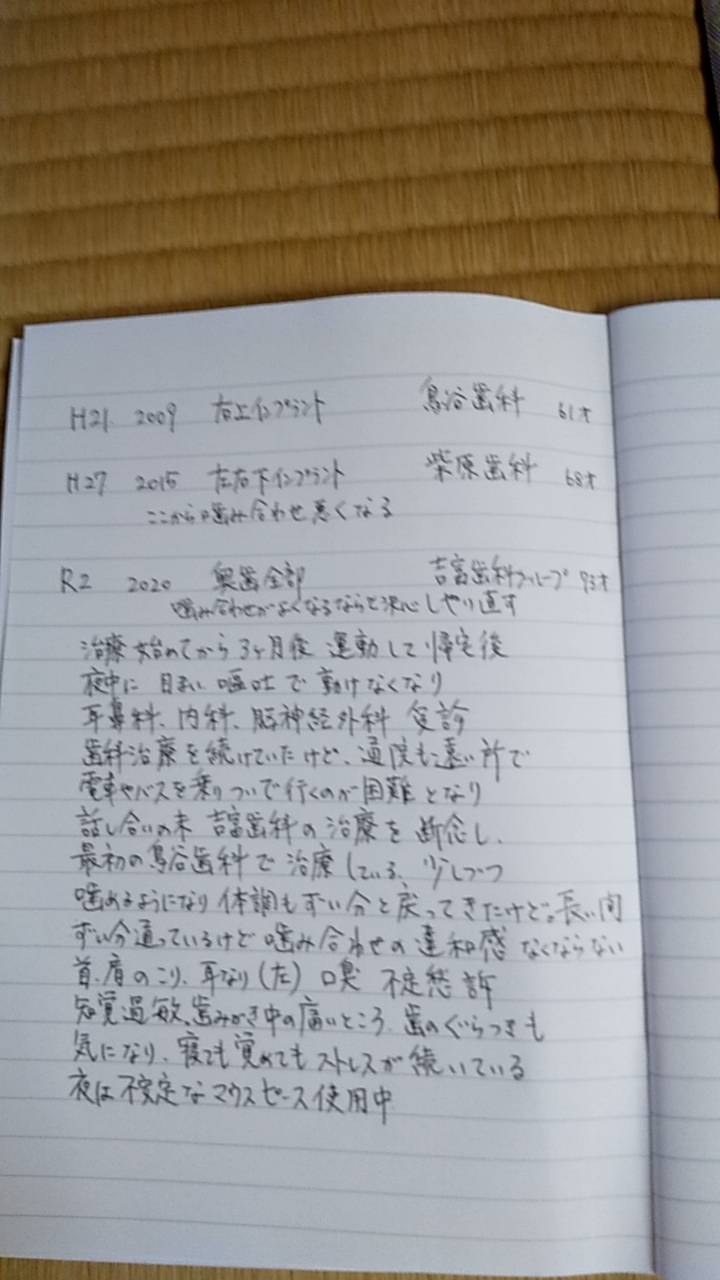 H21 2009 右上インプラント 鳥谷歯科 61才
H27 2015 左右下インプラント 柴原歯科 68才
ここから噛み合わせ悪くなる
R2 2020 奥歯全部 吉富歯科グループ 73才
噛み合わせがよくなるならと決心しやり直す
治療始めてから3ヶ月後 運動して帰宅後
夜中に 目まい 嘔吐で動けなくなり
耳鼻科、内科、脳神経外科 受診
歯科治療を続けていたけど、通院も遠い所で
電車やバスを乗りついで行くのが困難となり
話し合いの末 吉富歯科の治療を断念し、
最初の鳥谷歯科で治療している、少しづつ
噛めるようになり体調もずい分と戻ってきたけど。長い間
ずい分通っているけど噛み合わせの違和感なくならない
首、肩のこり、耳なり(左) 口臭 不定愁訴
知覚過敏、歯みがき中の痛いところ、歯のぐらつきも
気になり、寝ても覚めてもストレスが続いている
夜は不安定なマウスピース使用中